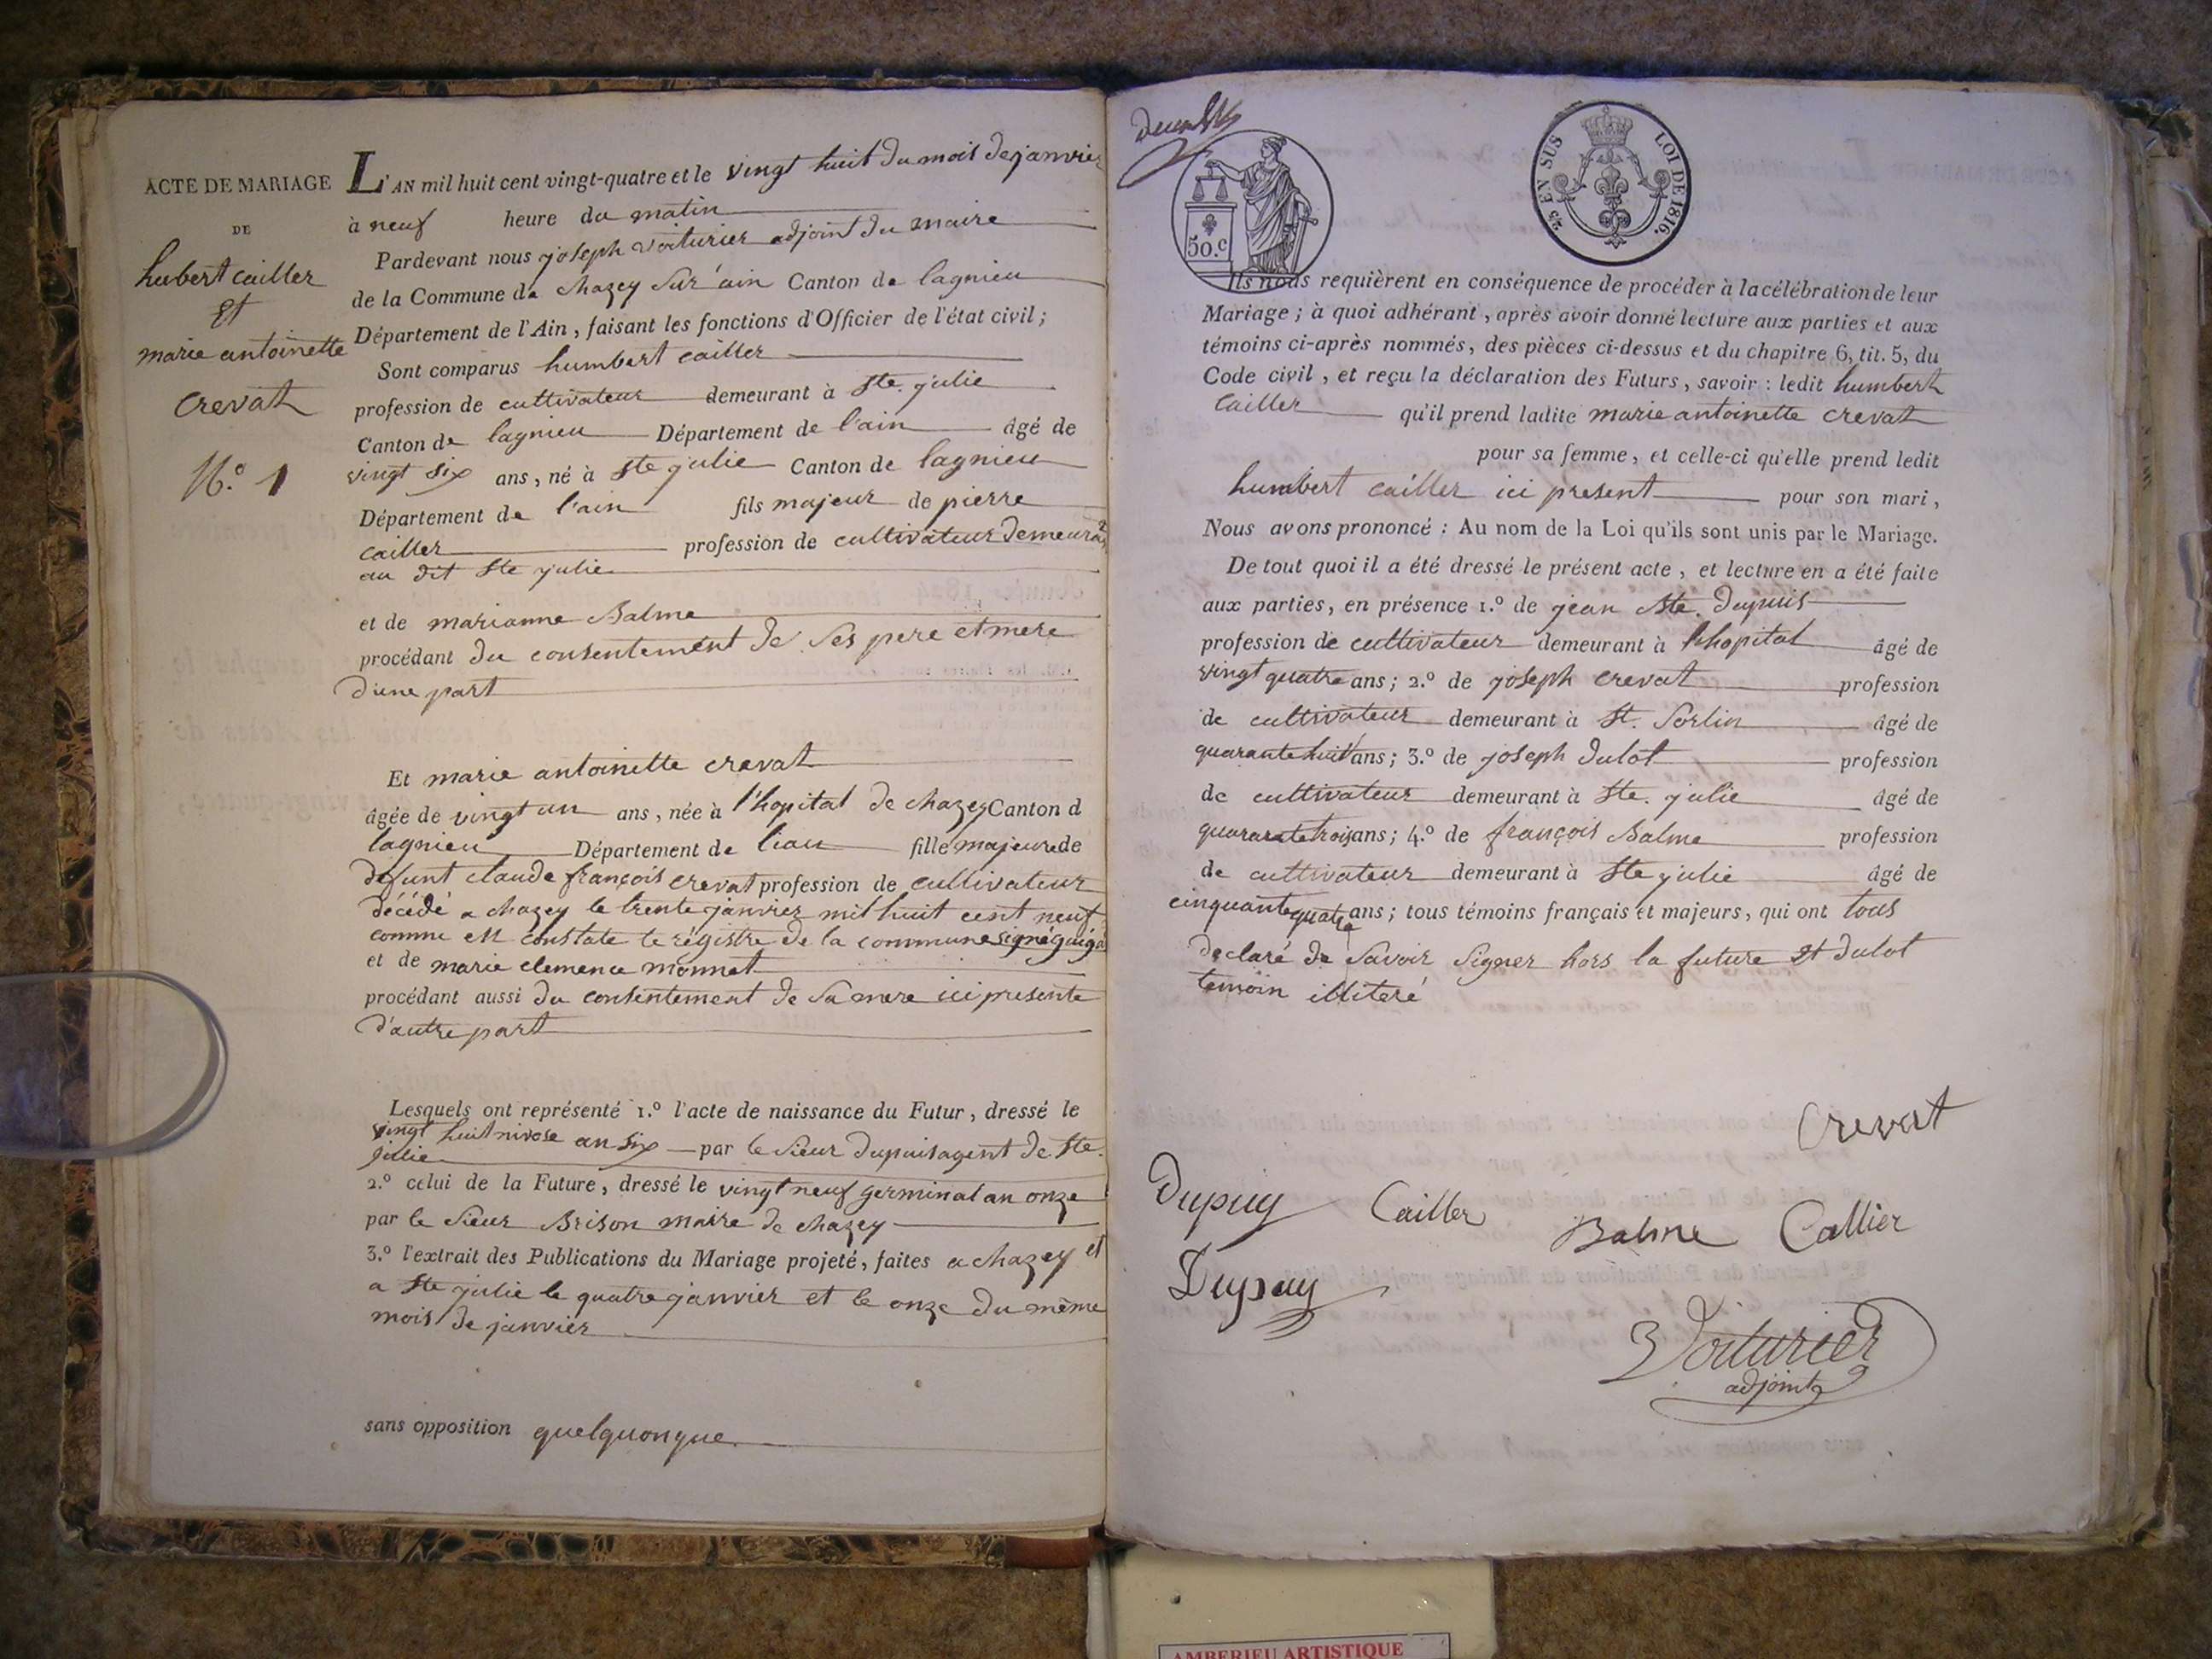 ACTE DE MARIAGE
DE
hubert cailler
Et
marie antoinette
crevat
N.º 1
L'AN mil huit cent vingt-quatre et le vingt huit du mois de janvier
à neuf heure du matin
Pardevant nous joseph voiturier adjoint du maire
de la Commune de chazey sur ain Canton de lagnieu
Département de l'Ain, faisant les fonctions d'Officier de l'état civil;
Sont comparus humbert cailler
profession de cultivateur demeurant à ste. julie
Canton de lagnieu Département de l'ain âgé de
vingt six ans, né à ste julie Canton de lagnieu
Département de l'ain fils majeur de pierre
cailler profession de cultivateur demeurant
au dit ste julie
et de marianne Balme
procédant du consentement de ses pere et mere
d'une part
Et marie antoinette crevat
âgée de vingt un ans, née à l'hopital de chazey Canton d
lagnieu Département de l'ain fille majeure de
defunt claude françois crevat profession de cultivateur
décédé a chazey le trente janvier mil huit cent neuf
comme en constate le régistre de la commune signé
et de marie clemence monnet
procédant aussi du consentement de sa mere ici presente
d'autre part
Lesquels ont représenté 1.º l'acte de naissance du Futur, dressé le
vingt huit nivose an six par le sieur dupuis agent de ste.
julie
2.º celui de la Future, dressé le vingt neuf germinal an onze
par le sieur Brison maire de chazey
3.º l'extrait des Publications du Mariage projeté, faites a chazey et
a ste julie le quatre janvier et le onze du même
mois de janvier
sans opposition quelquonque
50.c
25 EN SUS LOI DE 1816.
Ils nous requièrent en conséquence de procéder à la célébration de leur
Mariage; à quoi adhérant, après avoir donné lecture aux parties et aux
témoins ci-après nommés, des pièces ci-dessus et du chapitre 6, tit. 5, du
Code civil, et reçu la déclaration des Futurs, savoir: ledit humbert
cailler qu'il prend ladite marie antoinette crevat
pour sa femme, et celle-ci qu'elle prend ledit
humbert cailler ici present pour son mari,
Nous avons prononcé: Au nom de la Loi qu'ils sont unis par le Mariage.
De tout quoi il a été dressé le présent acte, et lecture en a été faite
aux parties, en présence 1.º de jean Bte. Dupuis
profession de cultivateur demeurant à l'hopital âgé de
vingt quatre ans; 2.º de joseph crevat profession
de cultivateur demeurant à St. Sorlin âgé de
quarante huit ans; 3.º de joseph dulot profession
de cultivateur demeurant à Ste. julie âgé de
quarante trois ans; 4.º de françois Balme profession
de cultivateur demeurant à Ste julie âgé de
cinquante quatre ans; tous témoins français et majeurs, qui ont tous
declaré de savoir signer hors la future et dulot
temoin illiteré
Crevat
Dupuy Cailler Balme Callier
Dupuy
Voiturier
adjoint
AMBERIEU ARTISTIQUE